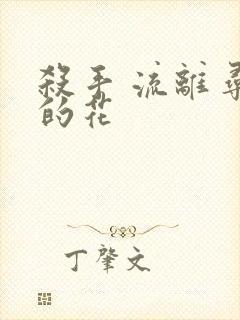 殺手 流離尋
的花
丁肇文